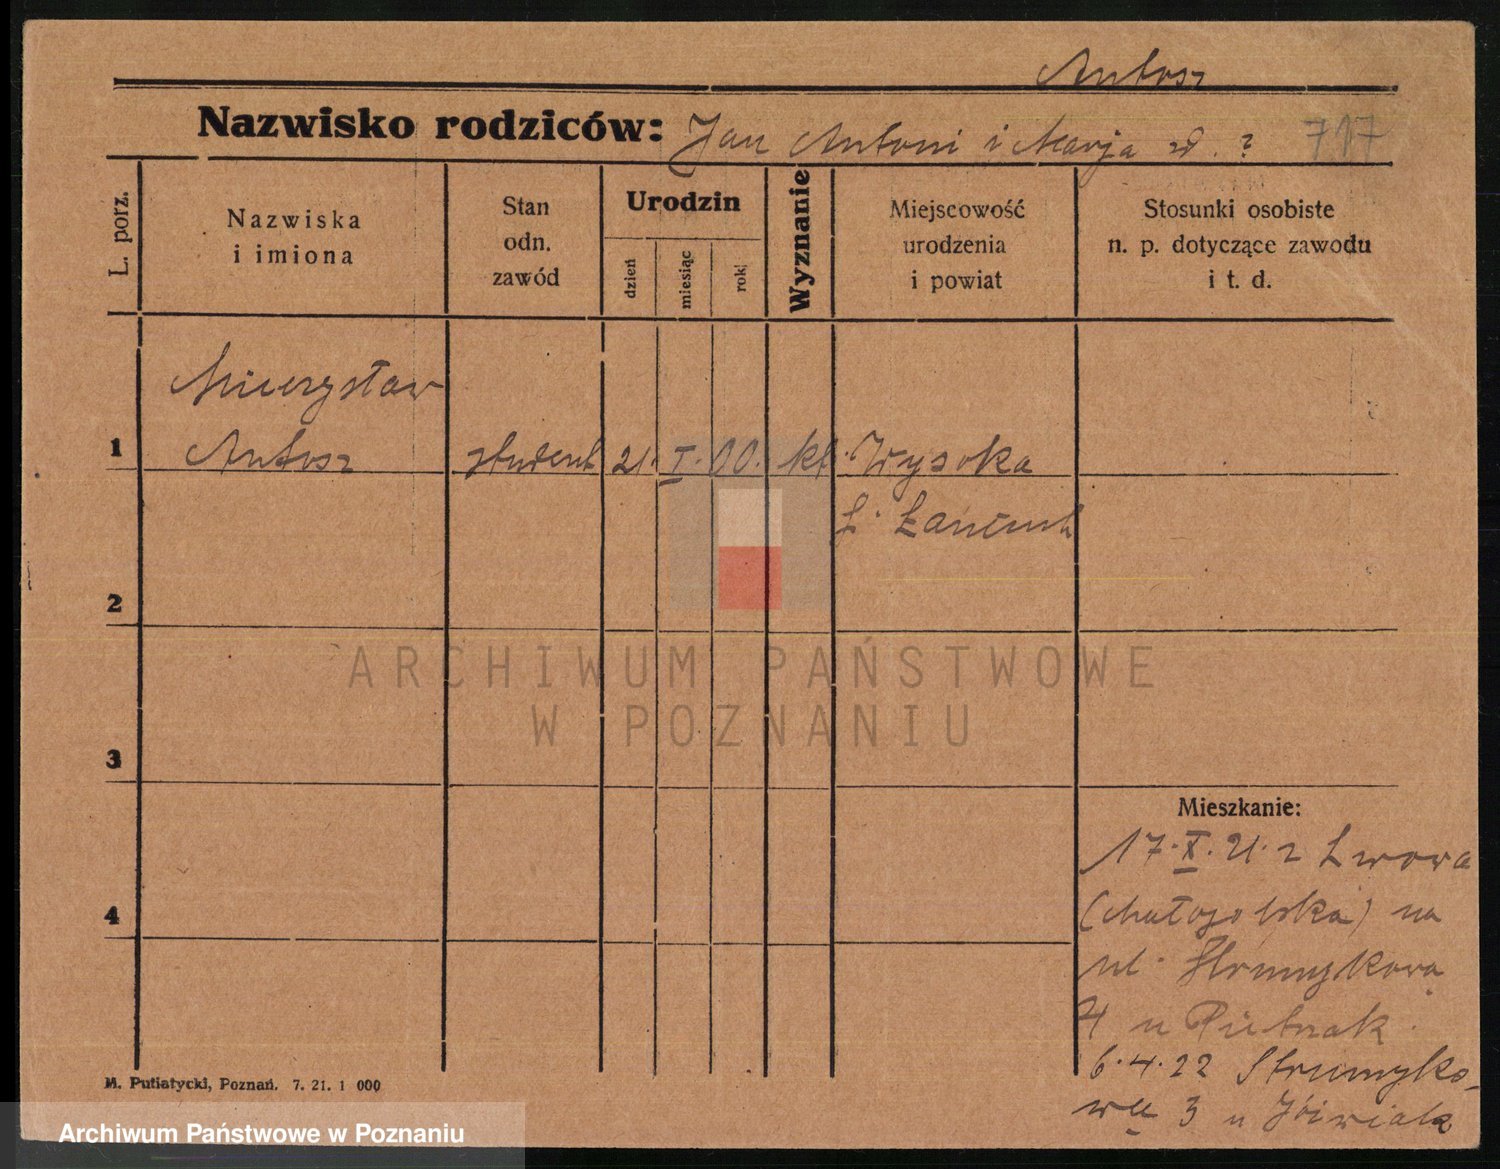 Antosz
Nazwisko rodziców: Jan Antoni i Marja zd. ? 717
L. porz.
Nazwiska
i imiona
Stan
odn.
zawód
Urodzin
dzień
miesiąc
rok
Wyznanie
Miejscowość
urodzenia
i powiat
Stosunki osobiste
n. p. dotyczące zawodu
i t. d.
Mieczysław
1 Antosz student 21. I. 00. kt. Wysoka
Łańcut
2
3
4
Mieszkanie:
17. X. 21. z Lwowa
(Małopolska) na
ul. Strumykową
4 u Pietrzak
6.4.22 Strumyko-
wą 3 u Jóźwiak
M. Putiatycki, Poznań. 7. 21. 1 000
ARCHIWUM PAŃSTWOWE
W POZNANIU
Archiwum Państwowe w Poznaniu